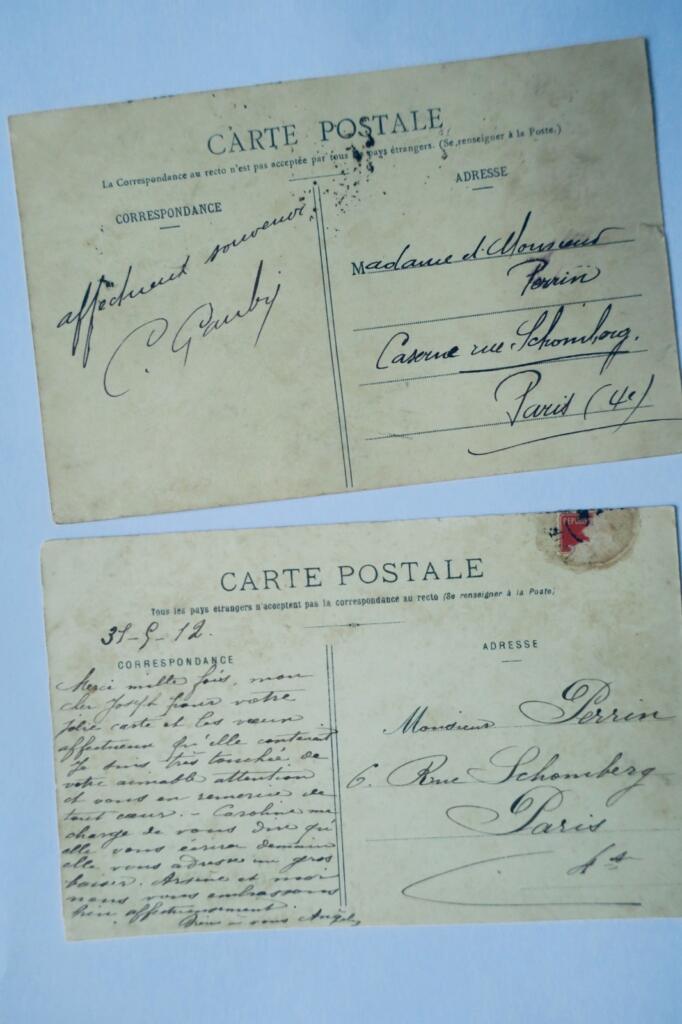 CARTE POSTALE
La Correspondance au recto n'est pas acceptée par tous les pays étrangers. (Se renseigner à la Poste.)
CORRESPONDANCE
ADRESSE
affectueux souvenir
C.
Madame et Monsieur
Perrin
Caserne rue Schomberg.
Paris (4e)
CARTE POSTALE
Tous les pays étrangers n'acceptent pas la correspondance au recto (Se renseigner à la Poste)
CORRESPONDANCE
Merci mille fois, mon
cher Joseph pour votre
jolie carte et les vœux
affectueux qu'elle contenait
Je suis très touchée de
votre aimable attention
et vous en remercie de
tout cœur. - Caroline me
charge de vous dire qu'
elle vous écrira demain
elle vous adresse un gros
baiser. Arsène et moi
nous vous embrassons
bien affectueusement.
à vous
ADRESSE
Monsieur Perrin
6. Rue Schomberg
Paris